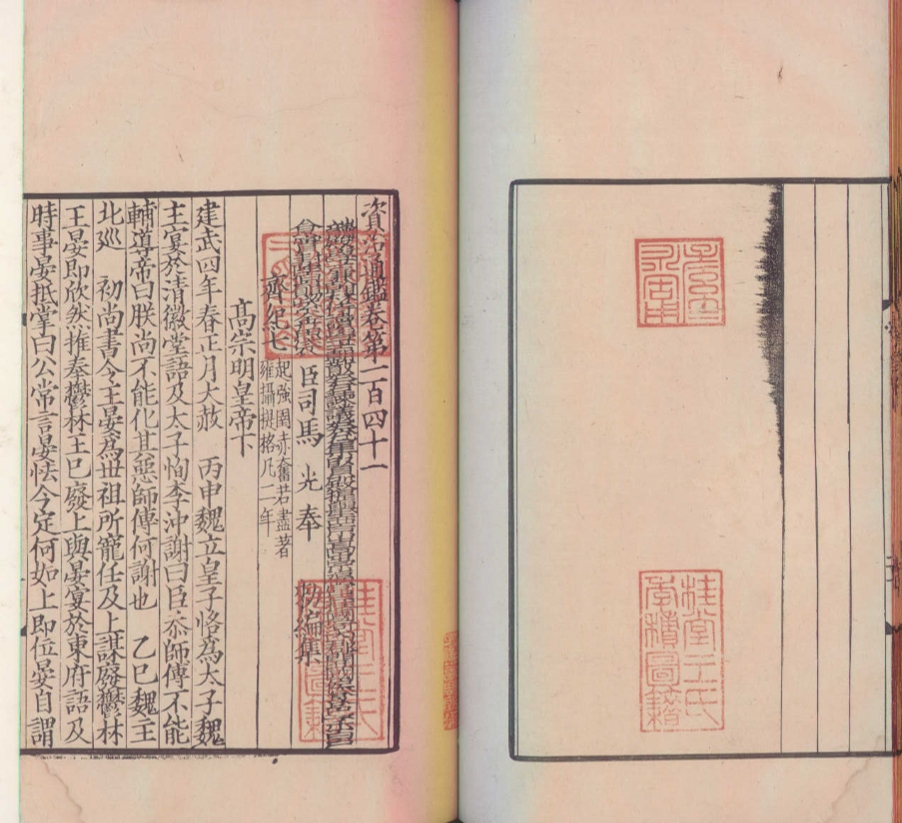 桂堂王氏
季積圖籍
資治通鑑卷第一百四十一
臣司馬 光奉 勑編集
齊紀七 起強圉赤奮若盡著
雍攝提格凡二年
髙宗明皇帝下
建武四年春正月大赦 丙申魏立皇子恪爲太子魏
主宴於清徽堂語及太子恂李沖謝曰臣忝師傅不能
輔導帝曰朕尚不能化其惡師傅何謝也 乙巳魏主
北廵 初尚書令王晏爲世祖所寵任及上謀廢鬱林
王晏即欣然推奉鬱林王已廢上與晏宴於東府語及
時事晏抵掌曰公常言晏怯今定何如上即位晏自謂